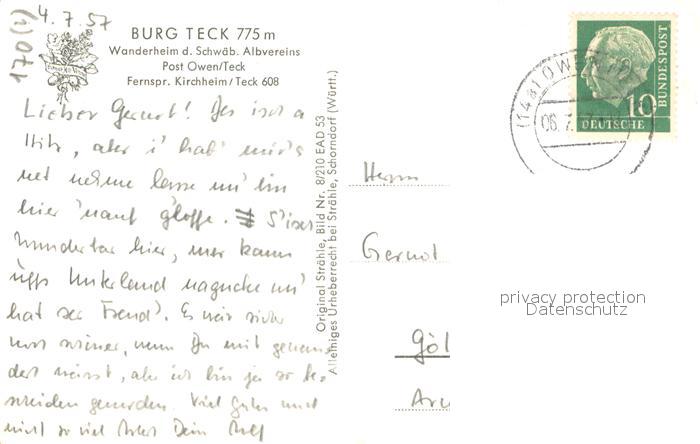 4.7.57
170(4)
BURG TECK 775 m
Wanderheim d. Schwäb. Albvereins
Post Owen/Teck
Fernspr. Kirchheim/Teck 608
Lieber Gernot! Des isch a
Hitz, aber i hab' mir's
net nehme lasse un' bin
hier 'nauf g'loffe. S'isch
wunderbar hier, mer kann
Unterland nagucke un'
hat sei Freud'. Es wär sicher
noch schöner, wenn Du mit
wärst, aber ich bin ja so be-
scheiden geworden. Viel Gutes und
nicht so viel Dein
Original Strähle, Bild Nr. 8/210 EAD 53
Alleiniges Urheberrecht bei Strähle, Schorndorf (Württ.)
Herrn
Gernot
Göl
(14a) OWEN
06.7.
10
DEUTSCHE
BUNDESPOST
privacy protection
Datenschutz